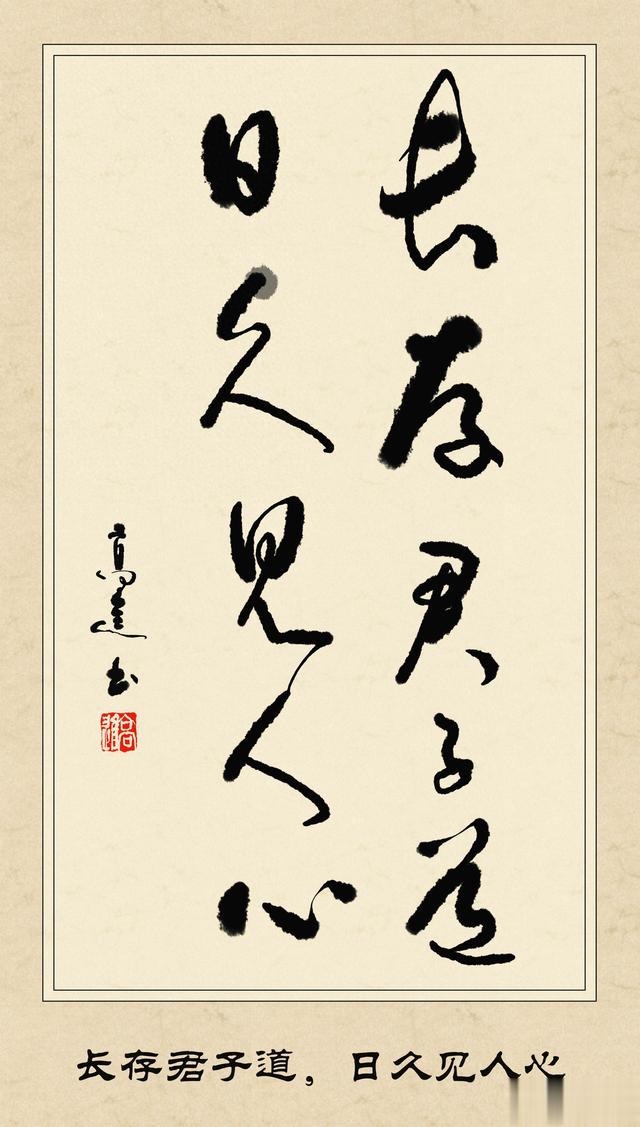 長存君子道
日久見人心
高進书
长存君子道，日久见人心